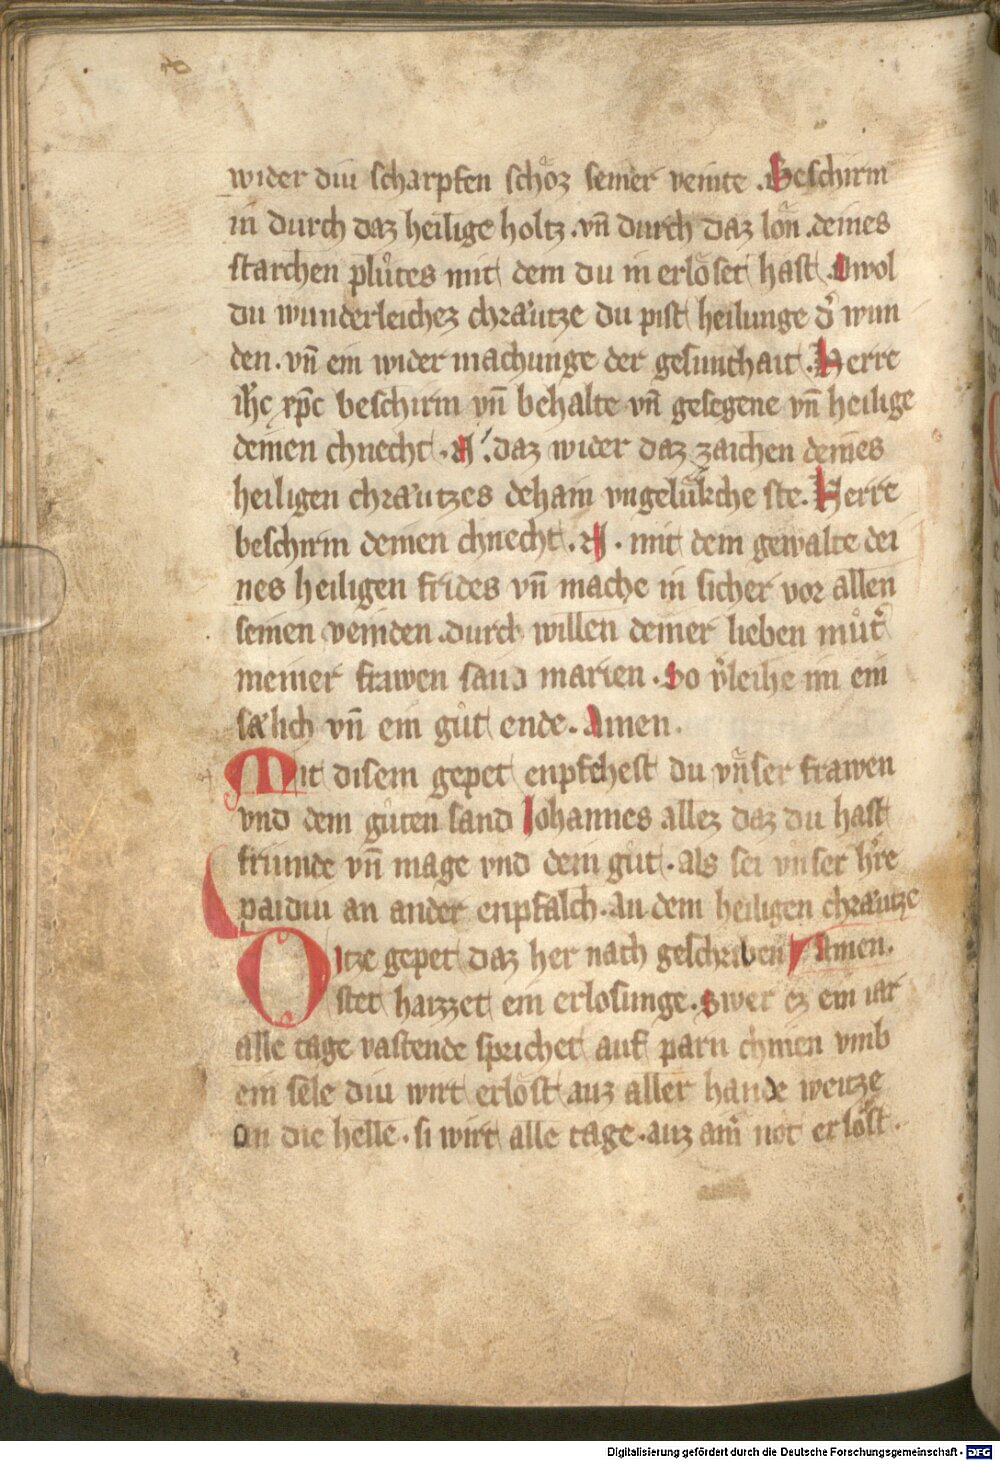 wider diu scharpfen schoͤz seiner veinte . Beschirm
in durch daz heilige holtz . vn̄ durch daz lon̄ . deines
starchen pluͦtes mit dem du in erloͤset hast . Owol
du wunderleichez chraͤutze du pist heilunge d̓ wun
den . vn̄ ein wider machunge der gesunthait . Herre
ih̄c xp̄c beschirm vn̄ behalte vn̄ gesegene vn̄ heilige
deinen chnecht . N . daz wider daz zaichen deines
heiligen chraͤutzes dehain vngeluͤkche ste . Herre
beschirm deinen chnecht . N . mit dem gewalte dei
nes heiligen frides vn̄ mache in sicher vor allen
seinen veinden . durch willen deiner lieben muͦt̓
meiner frawen sand marien . So v̓leihe im ein
sælich vn̄ ein guͦt ende . Amen .
Mit disem gepet enpfehest du vnser frawen
vnd dem guͦten sand Johannes allez daz du hast
friunde vn̄ mage vnd dein guͦt . als sei vnser h̓re
paidiu an ander enpfalch . an dem heiligen chraͤutze
Ditze gepet daz her nach geschriben Amen .
stet haizzet ein erlosunge . Swer ez ein iar
alle tage vastende sprichet auf parn chnien vmb
ein sele diu wirt erloͤst auz aller hande weitze
an die helle . si wirt alle tage . auz ain̓ not erloͤst .
Digitalisierung gefördert durch die Deutsche Forschungsgemeinschaft - DFG